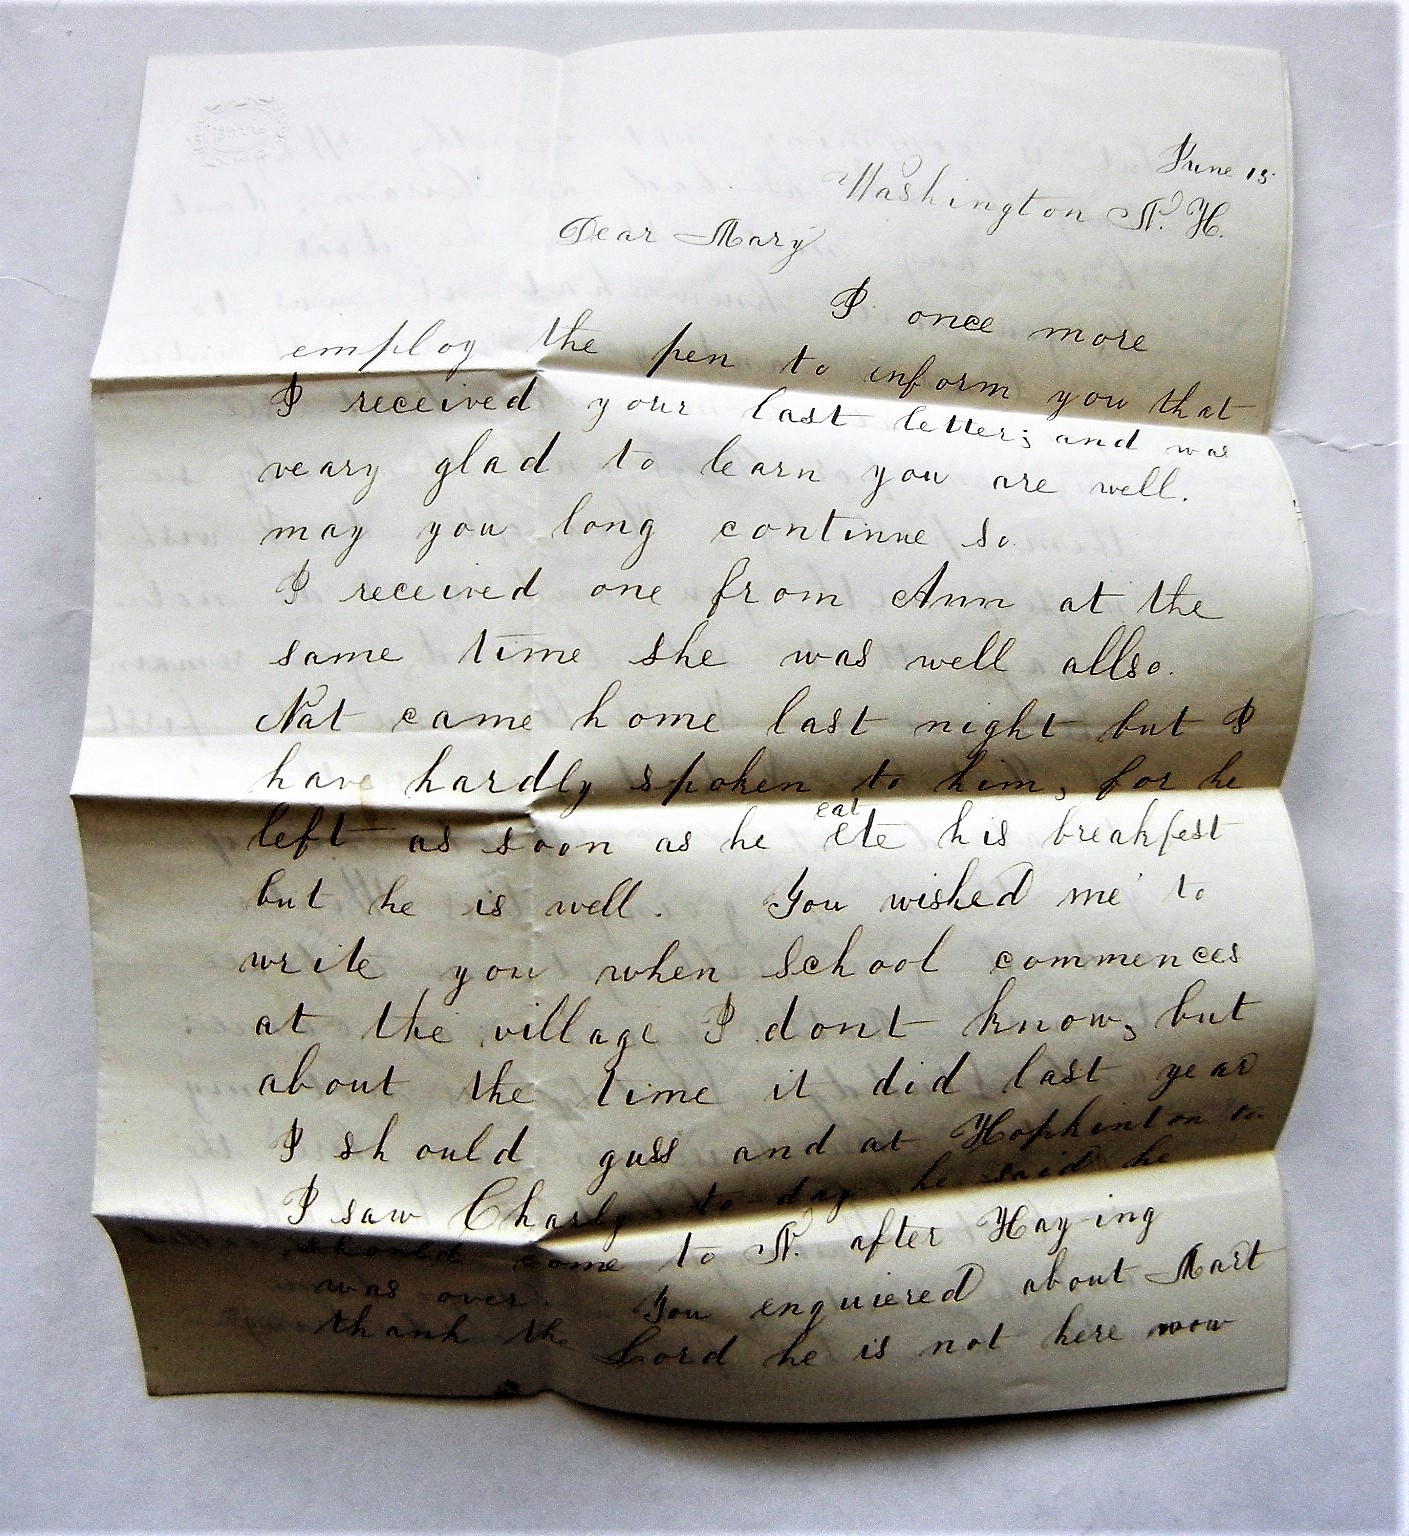 June 15
Washington N. H.
Dear Mary
I once more
employ the pen to inform you that
I received your last letter; and was
veary glad to learn you are well.
may you long continue so.
I received one from Ann at the
same time she was well allso.
Nat came home last night but I
have hardly spoken to him, for he
left as soon as he eat ete his breakfest
but he is well. You wished me to
write you when School commences
at the village I dont know, but
about the time it did last year
I should guss and at Hopkinton
I saw Charly to day he said he
should come to N. after Hay-ing
was over. You enquiered about Mart
thank the Lord he is not here now